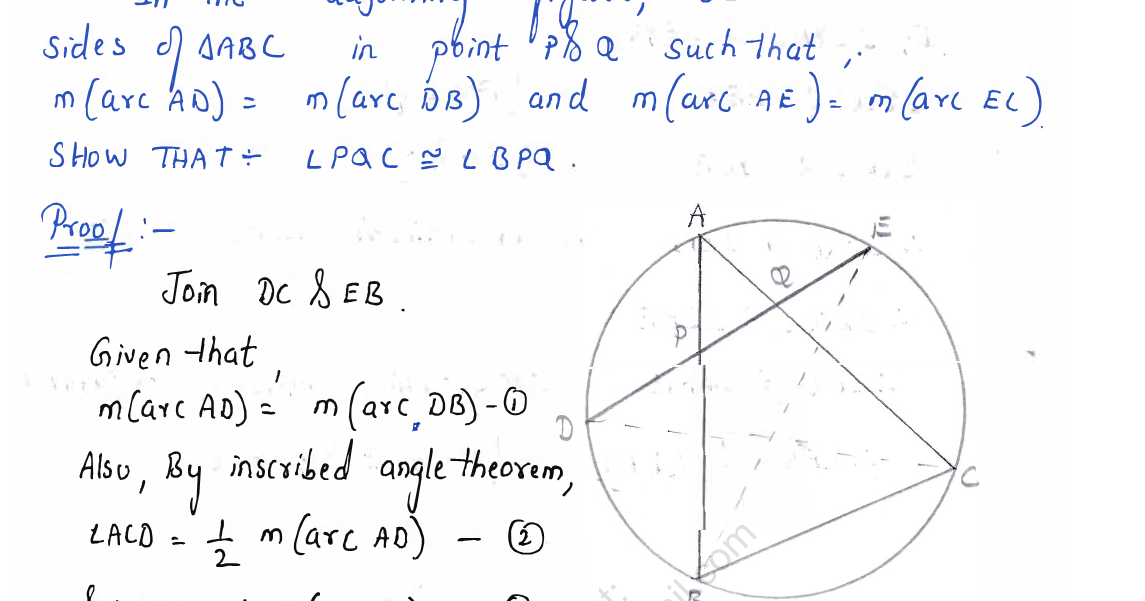 sides of ΔABC in point P & Q such that,
m(arc AD) = m(arc DB) and m(arc AE) = m(arc EC).
SHOW THAT ÷ ∠PQC ≅ ∠BPQ.
Proof :-
Join DC & EB.
Given that,
m(arc AD) = m(arc DB) - ①
Also, By inscribed angle theorem,
∠ACD = 1/2 m(arc AD) - ②
A
E
Q
P
D
C
B